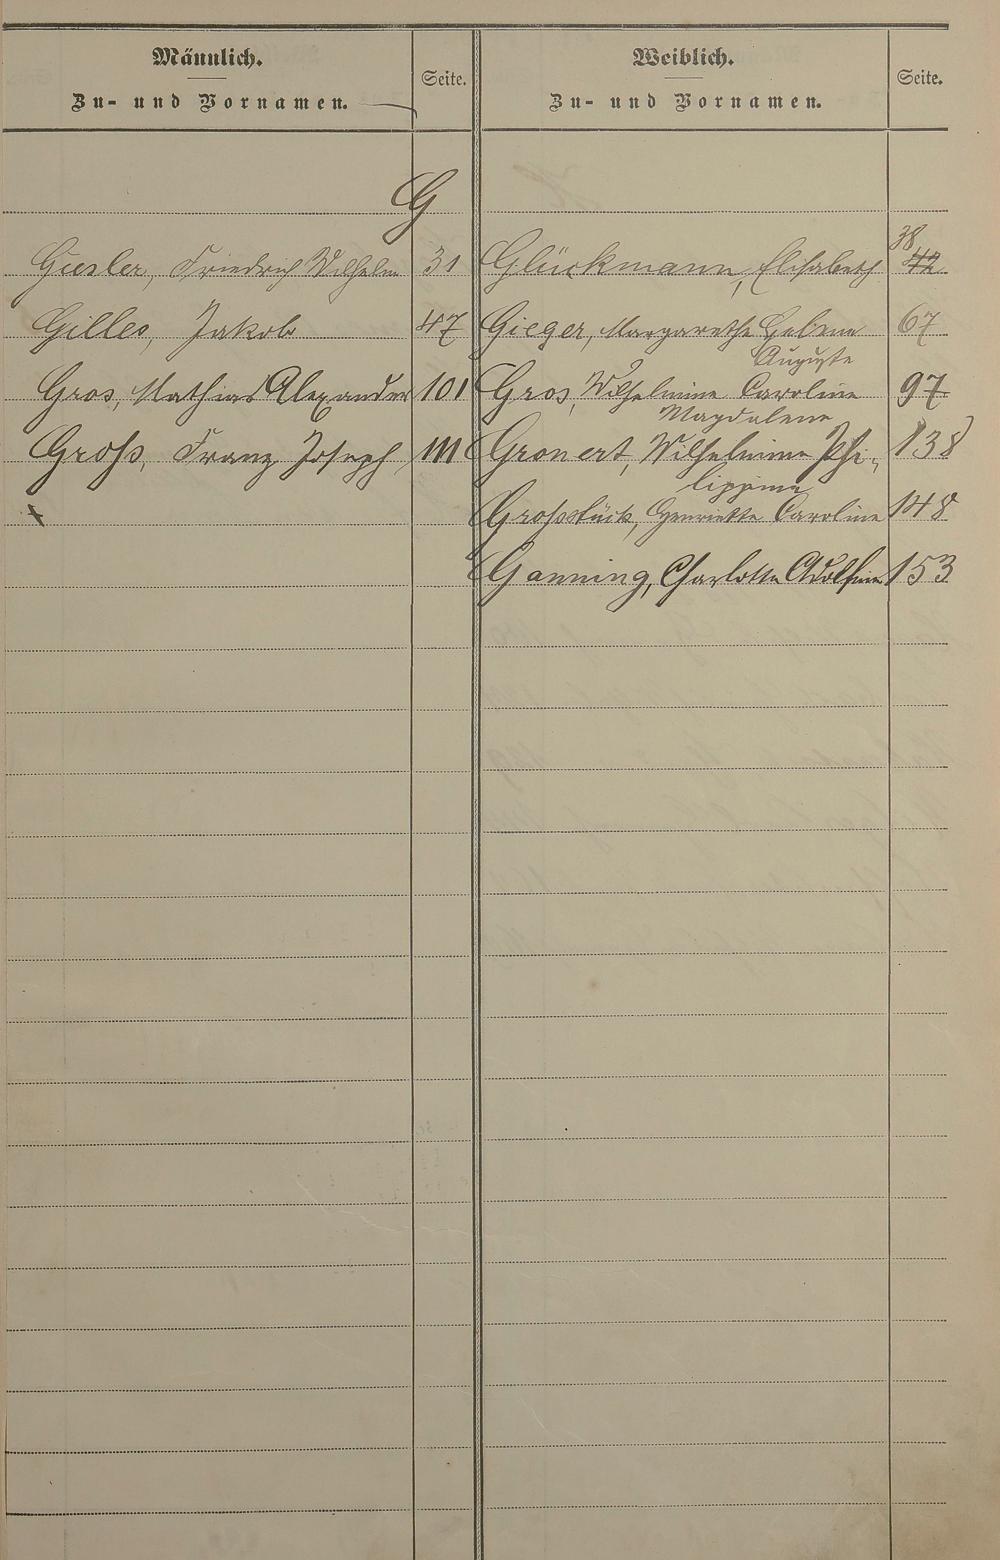 Männlich.
Zu- und Vornamen.
Seite.
Weiblich.
Zu- und Vornamen.
Seite.
G
Giesler, Friedrich Wilhelm 31
Gilles, Jakob 47
Gros, Mathias Alexander 101
Groß, Franz Joseph 111
38
Glückmann, Elisabeth 42
Gieger, Margarethe Helene 67
Auguste
Gros, Wilhelmine Caroline 97
Magdalena
Gronert, Wilhelmine Phi- 138
lippine
Großstück, Henriette Caroline 148
Ganning, Charlotte Adolfine 153